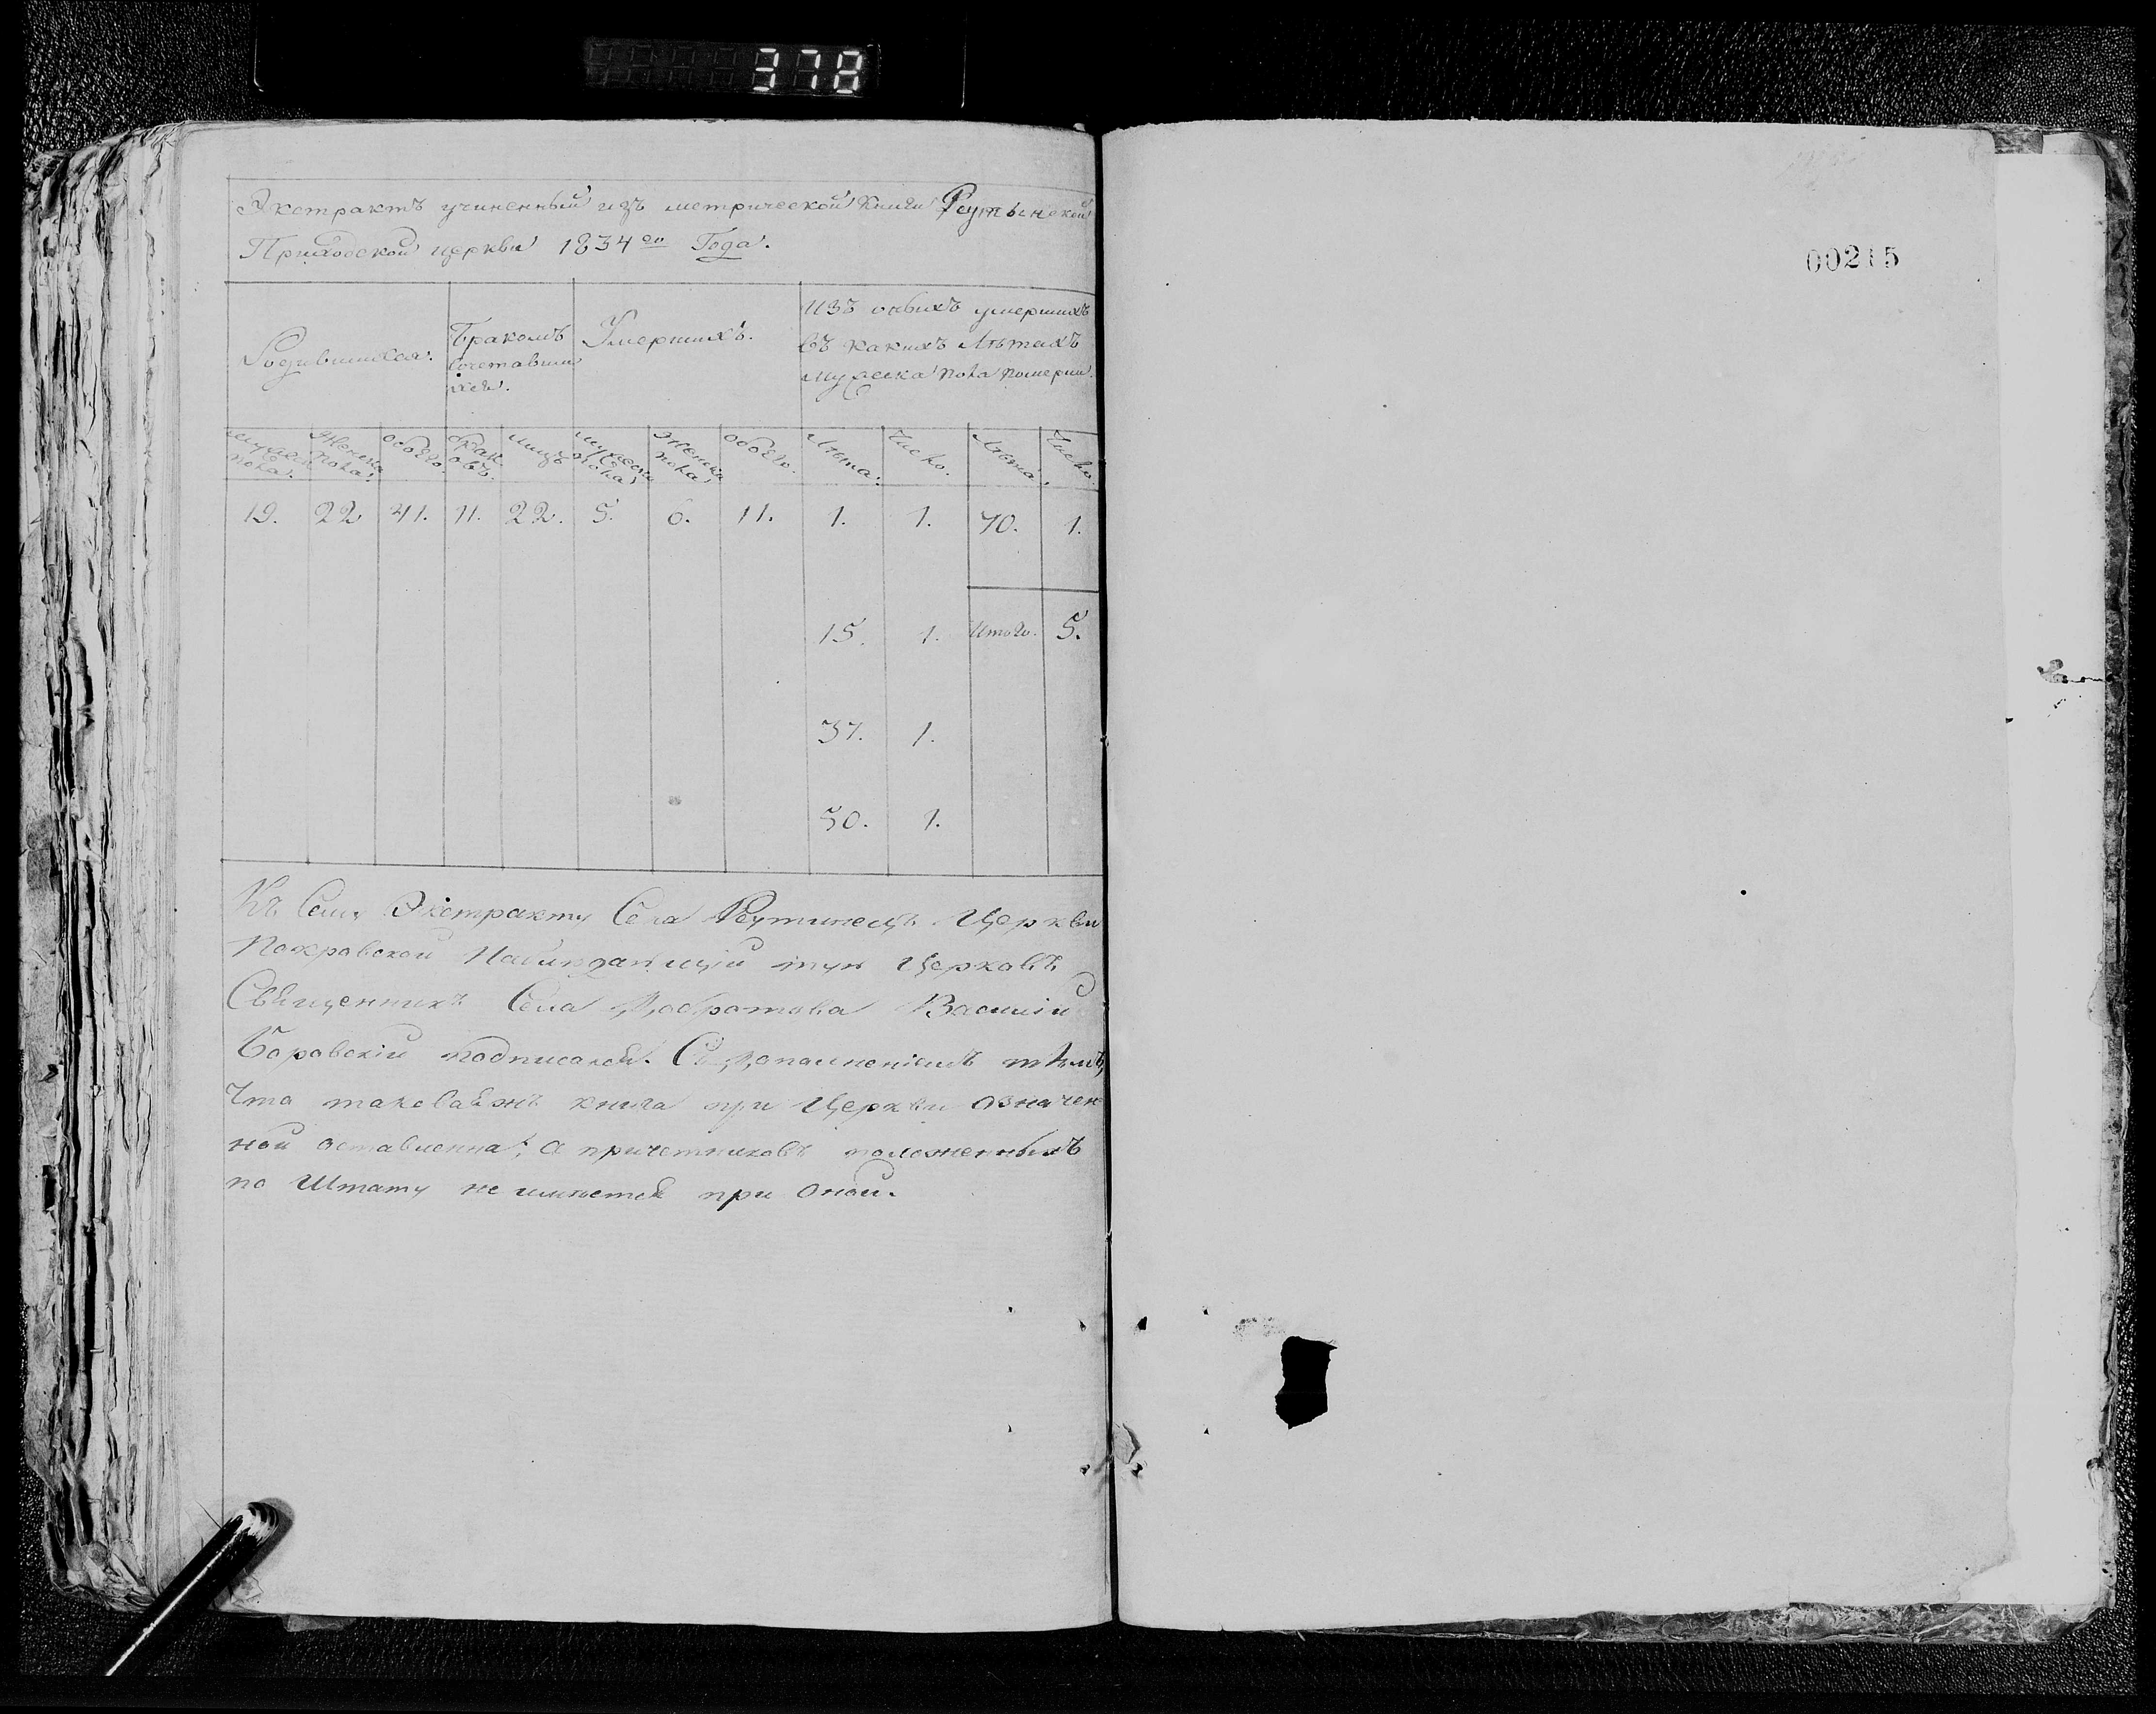 378
Экстрактъ учиненный изъ метрической Книги Реутинской
Приходской церкви 1834го Года.
Родившихся.
Бракомъ
Сочетавши
хся.
Умершихъ.
Изъ оныхъ умершихъ
въ какихъ Лѣтахъ
мужеска пола померли.
мужеска пола. Женска пола. обоего. браковъ. лицъ. мужеска пола. Женска пола. обоего. Лѣта. Число. Лѣта. Число.
19. 22 41. 11. 22. 5. 6. 11. 1. 1. 70. 1.
15. 1. Итого. 5.
37. 1.
50. 1.
Къ Сему Экстракту Села Реутинецъ Церкви
Покровской тун Церковъ
Священникъ Села Добротова Василій
Боровскій подписался. Съ дополненіемъ тѣмъ,
Что таковаяжъ книга при Церкви означен
ной оставленна; а причетниковъ положенныхъ
по Штату не имѣется при оной.
00215